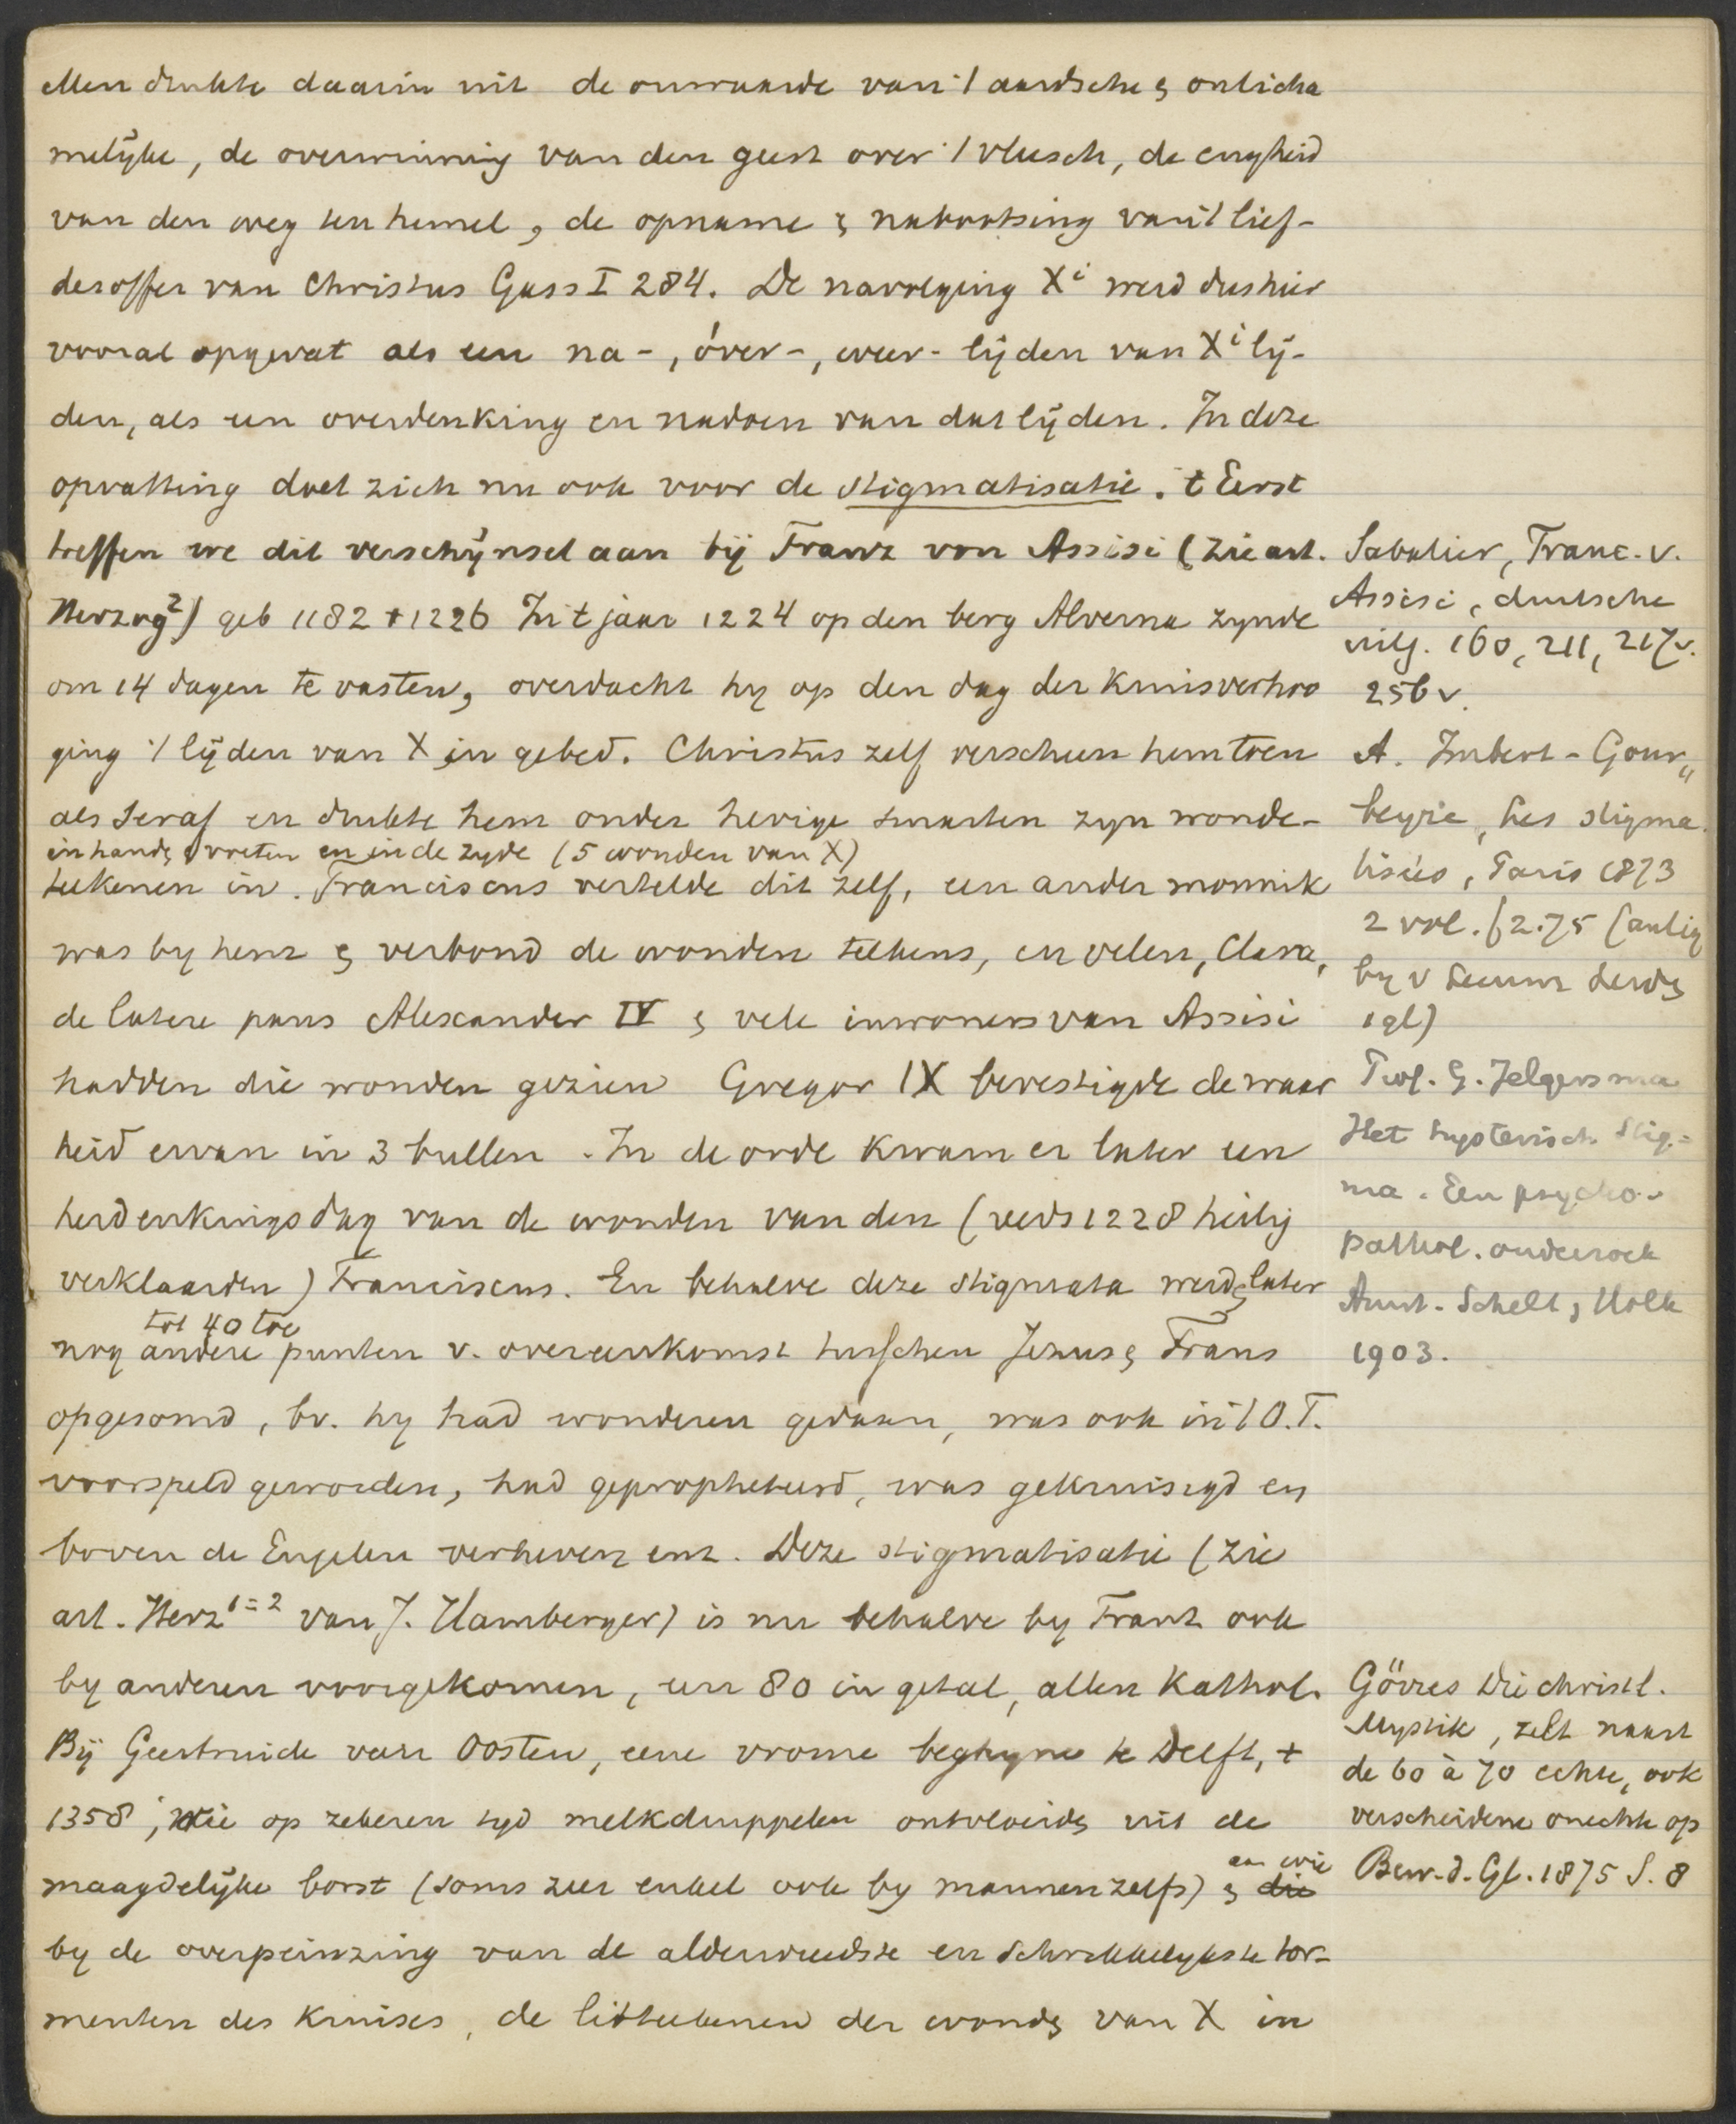 Men drukte daarin uit de onwaarde van 't aardsche & onlicha
melijke, de overwinning van den geest over 't vleesch, de engheid
van den weg ten hemel, de opname & nabootsing van 't lief-
desoffer van Christus Gass I 284. De navolging Xi werd dus hier
vooral opgevat als een na-, óver-, weer- lijden van Xi lij-
den, als een overdenking en nadoen van dat lijden. In deze
opvatting doet zich nu ook voor de stigmatisatie. 't Eerst
treffen we dit verschijnsel aan bij Franz von Assisi (zie art.
Herzog2) geb 1182 † 1226 In 't jaar 1224 op den berg Alverna zynde
om 14 dagen te vasten, overdacht hy op den dag der Kruisverhoo
ging 't lijden van X in gebed. Christus zelf verscheen hem toen
als Seraf en drukte hem onder hevige smarten zyn wonde-
in hand& voeten en in de zyde (5 wonden van X)
teekenen in. Franciscus vertelde dit zelf, een ander monnik
was by hem & verbond de wonden telkens, en velen, Clara,
de latere paus Alexander IV & vele inwoners van Assisi
hadden die wonden gezien Gregor IX bevestigde de waar
heid ervan in 3 bullen. In de orde kwam er later een
herdenkingsdag van de wonden van den (reeds 1228 heilig
verklaarden) Franciscus. En behalve deze stigmata werd& later
tot 40 toe
nog andere punten v. overeenkomst tusschen Jezus & Frans
opgesomd, bv. hy had wonderen gedaan, was ook in 't O.T.
voorspeld geworden, had gepropheteerd, was gekruisigd en
boven de Engelen verheven enz. Deze stigmatisatie (zie
art. Herz1=2 van J. Hamberger) is nu behalve by Franz ook
by anderen voorgekomen, een 80 in getal, allen Kathol.
Bij Geertruide van Oosten, eene vrome beghyne te Delft, †
1358, wie op zekeren tyd melkdruppelen ontvloeid& uit de
maagdelijke borst (soms zeer enkel ook by mannen zelfs) & die
aan wie
by de overpeinzing van de alderwreedste en schrikkelykste tor-
menten des Kruises, de litteekenen der wond& van X in
Sabatier, Franc. v.
Assisi, deutsche
uitg. 160, 211, 217v.
256v.
A. Imbert-Gour„
beyre, Les stigma
tisées, Paris 1873
2 vol. f 2.75 (antiq
by v Leeuw Leid&
igl)
Prof. G. Jelgersma
Het hysterisch Stig-
ma. Een psycho-
pathol. onderzoek
Amst. Schelt, Holk
1903.
Görres Die christl.
Mystik, telt naast
de 60 à 70 echte, ook
verscheidene onechte op
Bew. d. Gl. 1875 S. 8